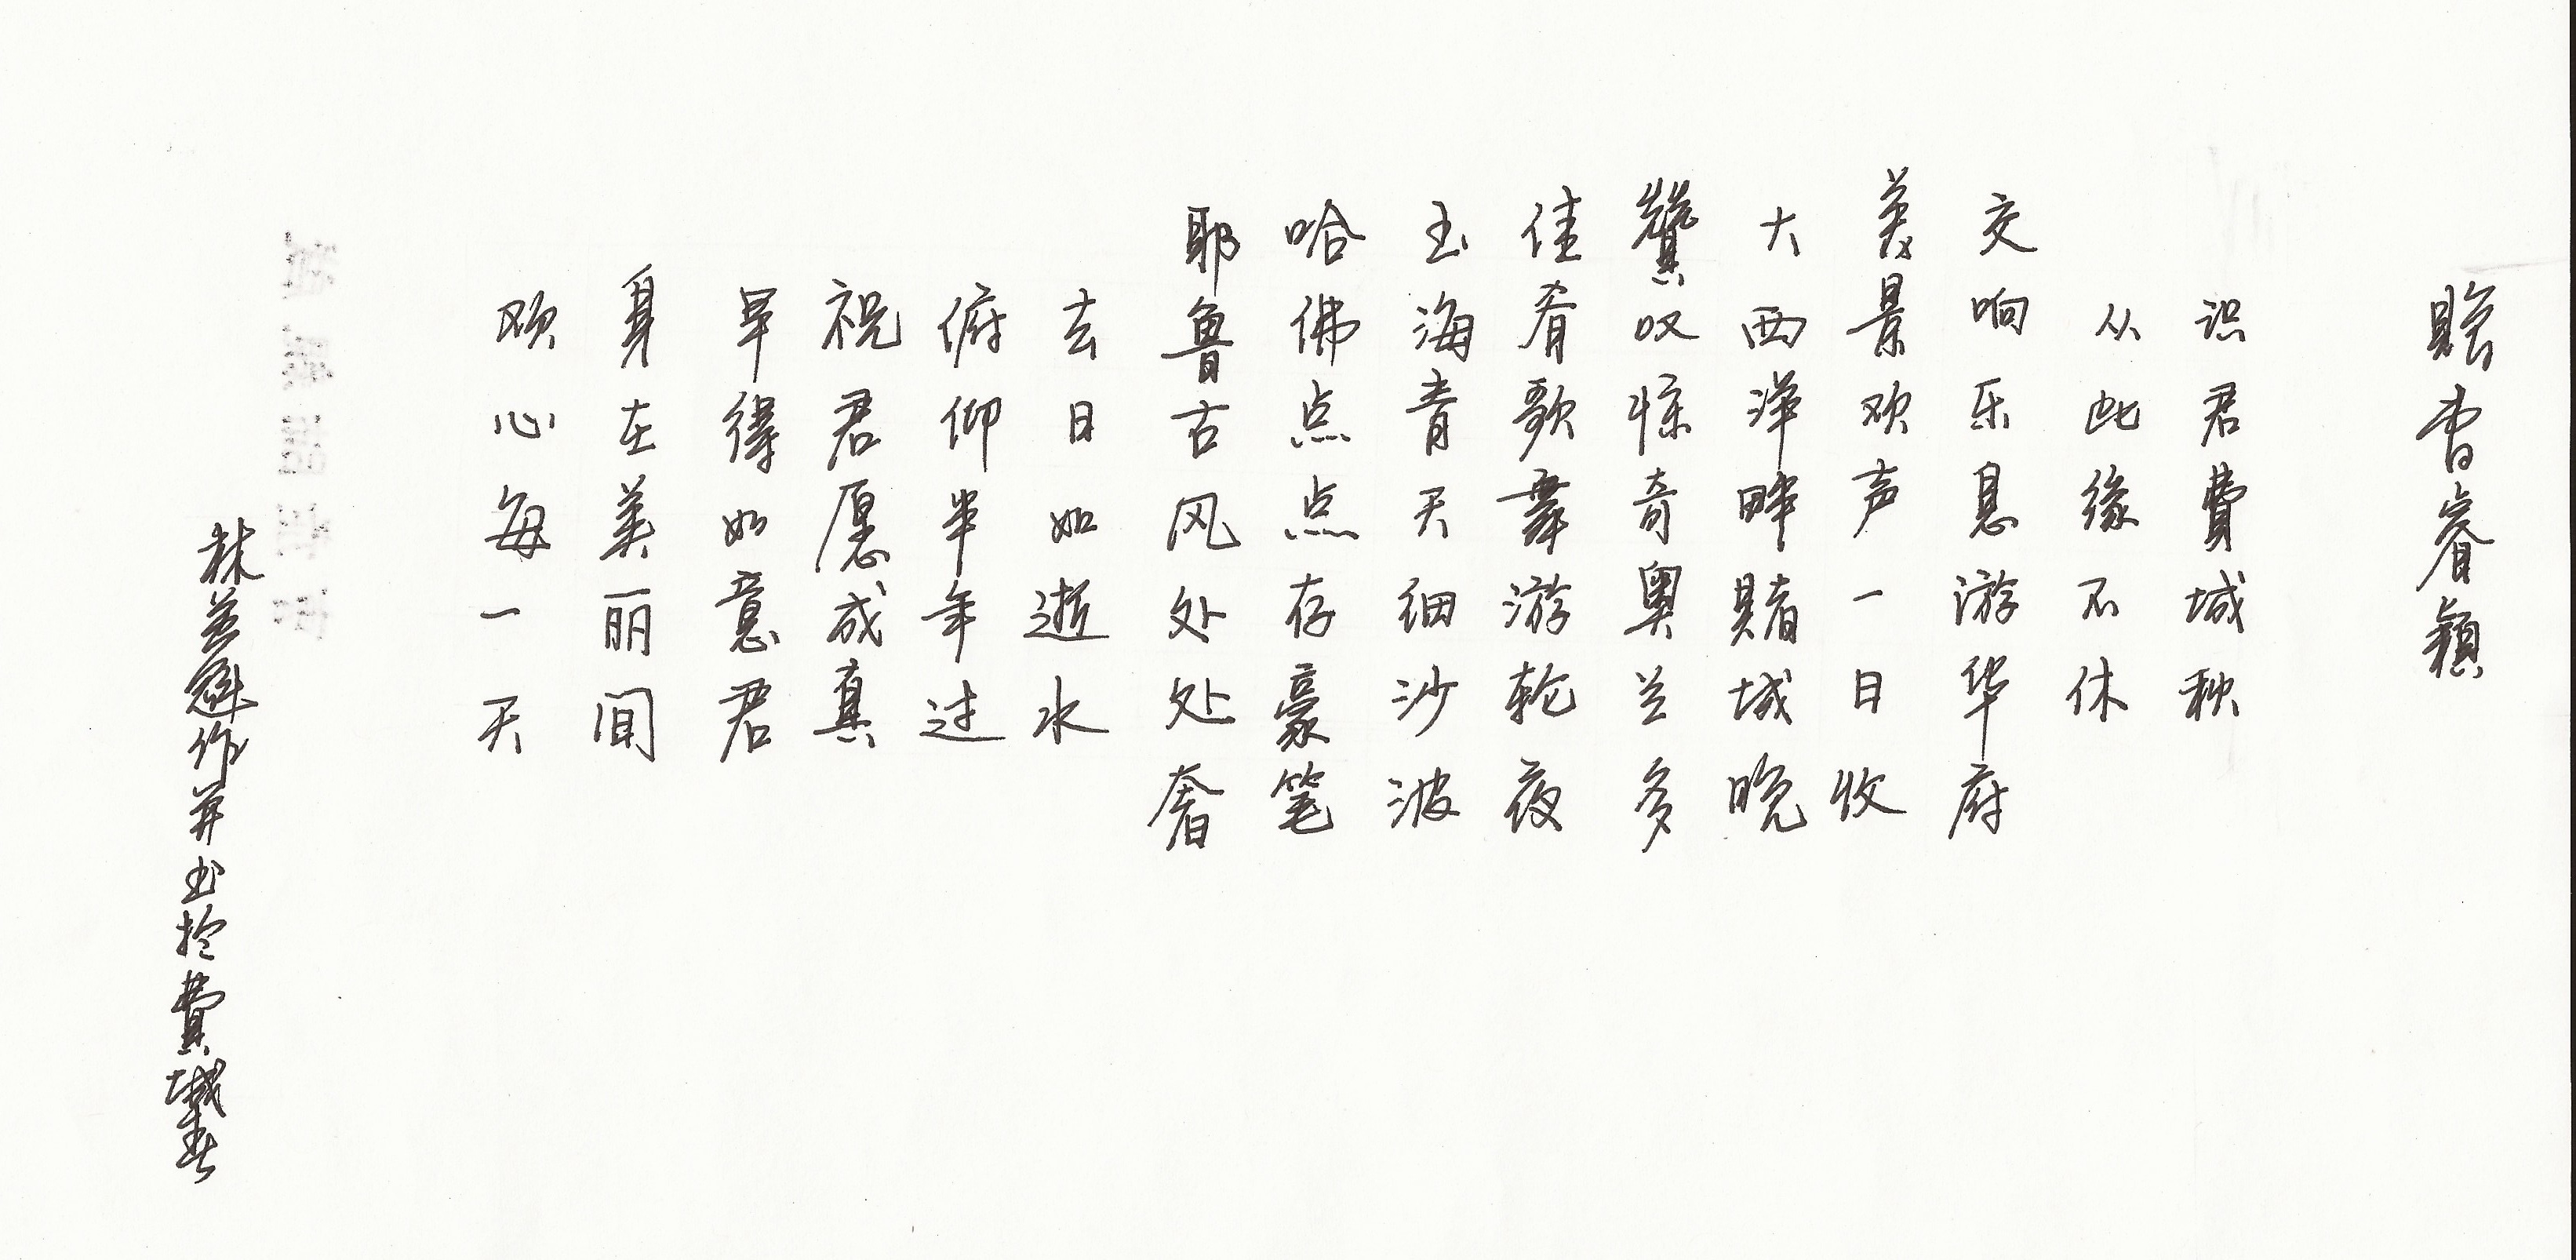 赠曹睿颖
识君費城秋
从此缘不休
交响乐息游华府
美景欢声一日收
大西洋畔賭城晚
贊叹惊奇奥兰多
佳肴歌舞游轮夜
玉海青天细沙波
哈佛点点存豪笔
耶鲁古风处处奢
去日如逝水
俯仰半年过
祝君愿成真
早得如意君
身在美丽间
欢心每一天
林善魁作并书於費城春